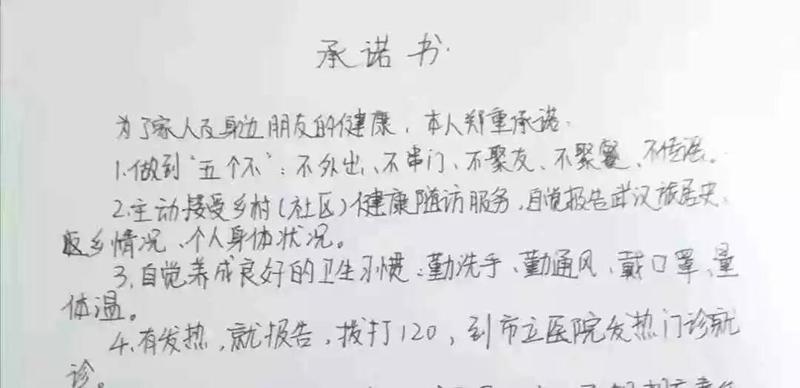 承诺书
为了家人及身边朋友的健康，本人郑重承诺：
1.做到“五个不”：不外出、不串门、不聚友、不聚餐、不
2.主动接受乡村（社区）健康随访服务，自觉报告武汉旅居史、
返乡情况、个人身体状况。
3.自觉养成良好的卫生习惯：勤洗手、勤通风、戴口罩、量
体温。
4.有发热，就报告，拨打120，到市立医院发热门诊就
诊。